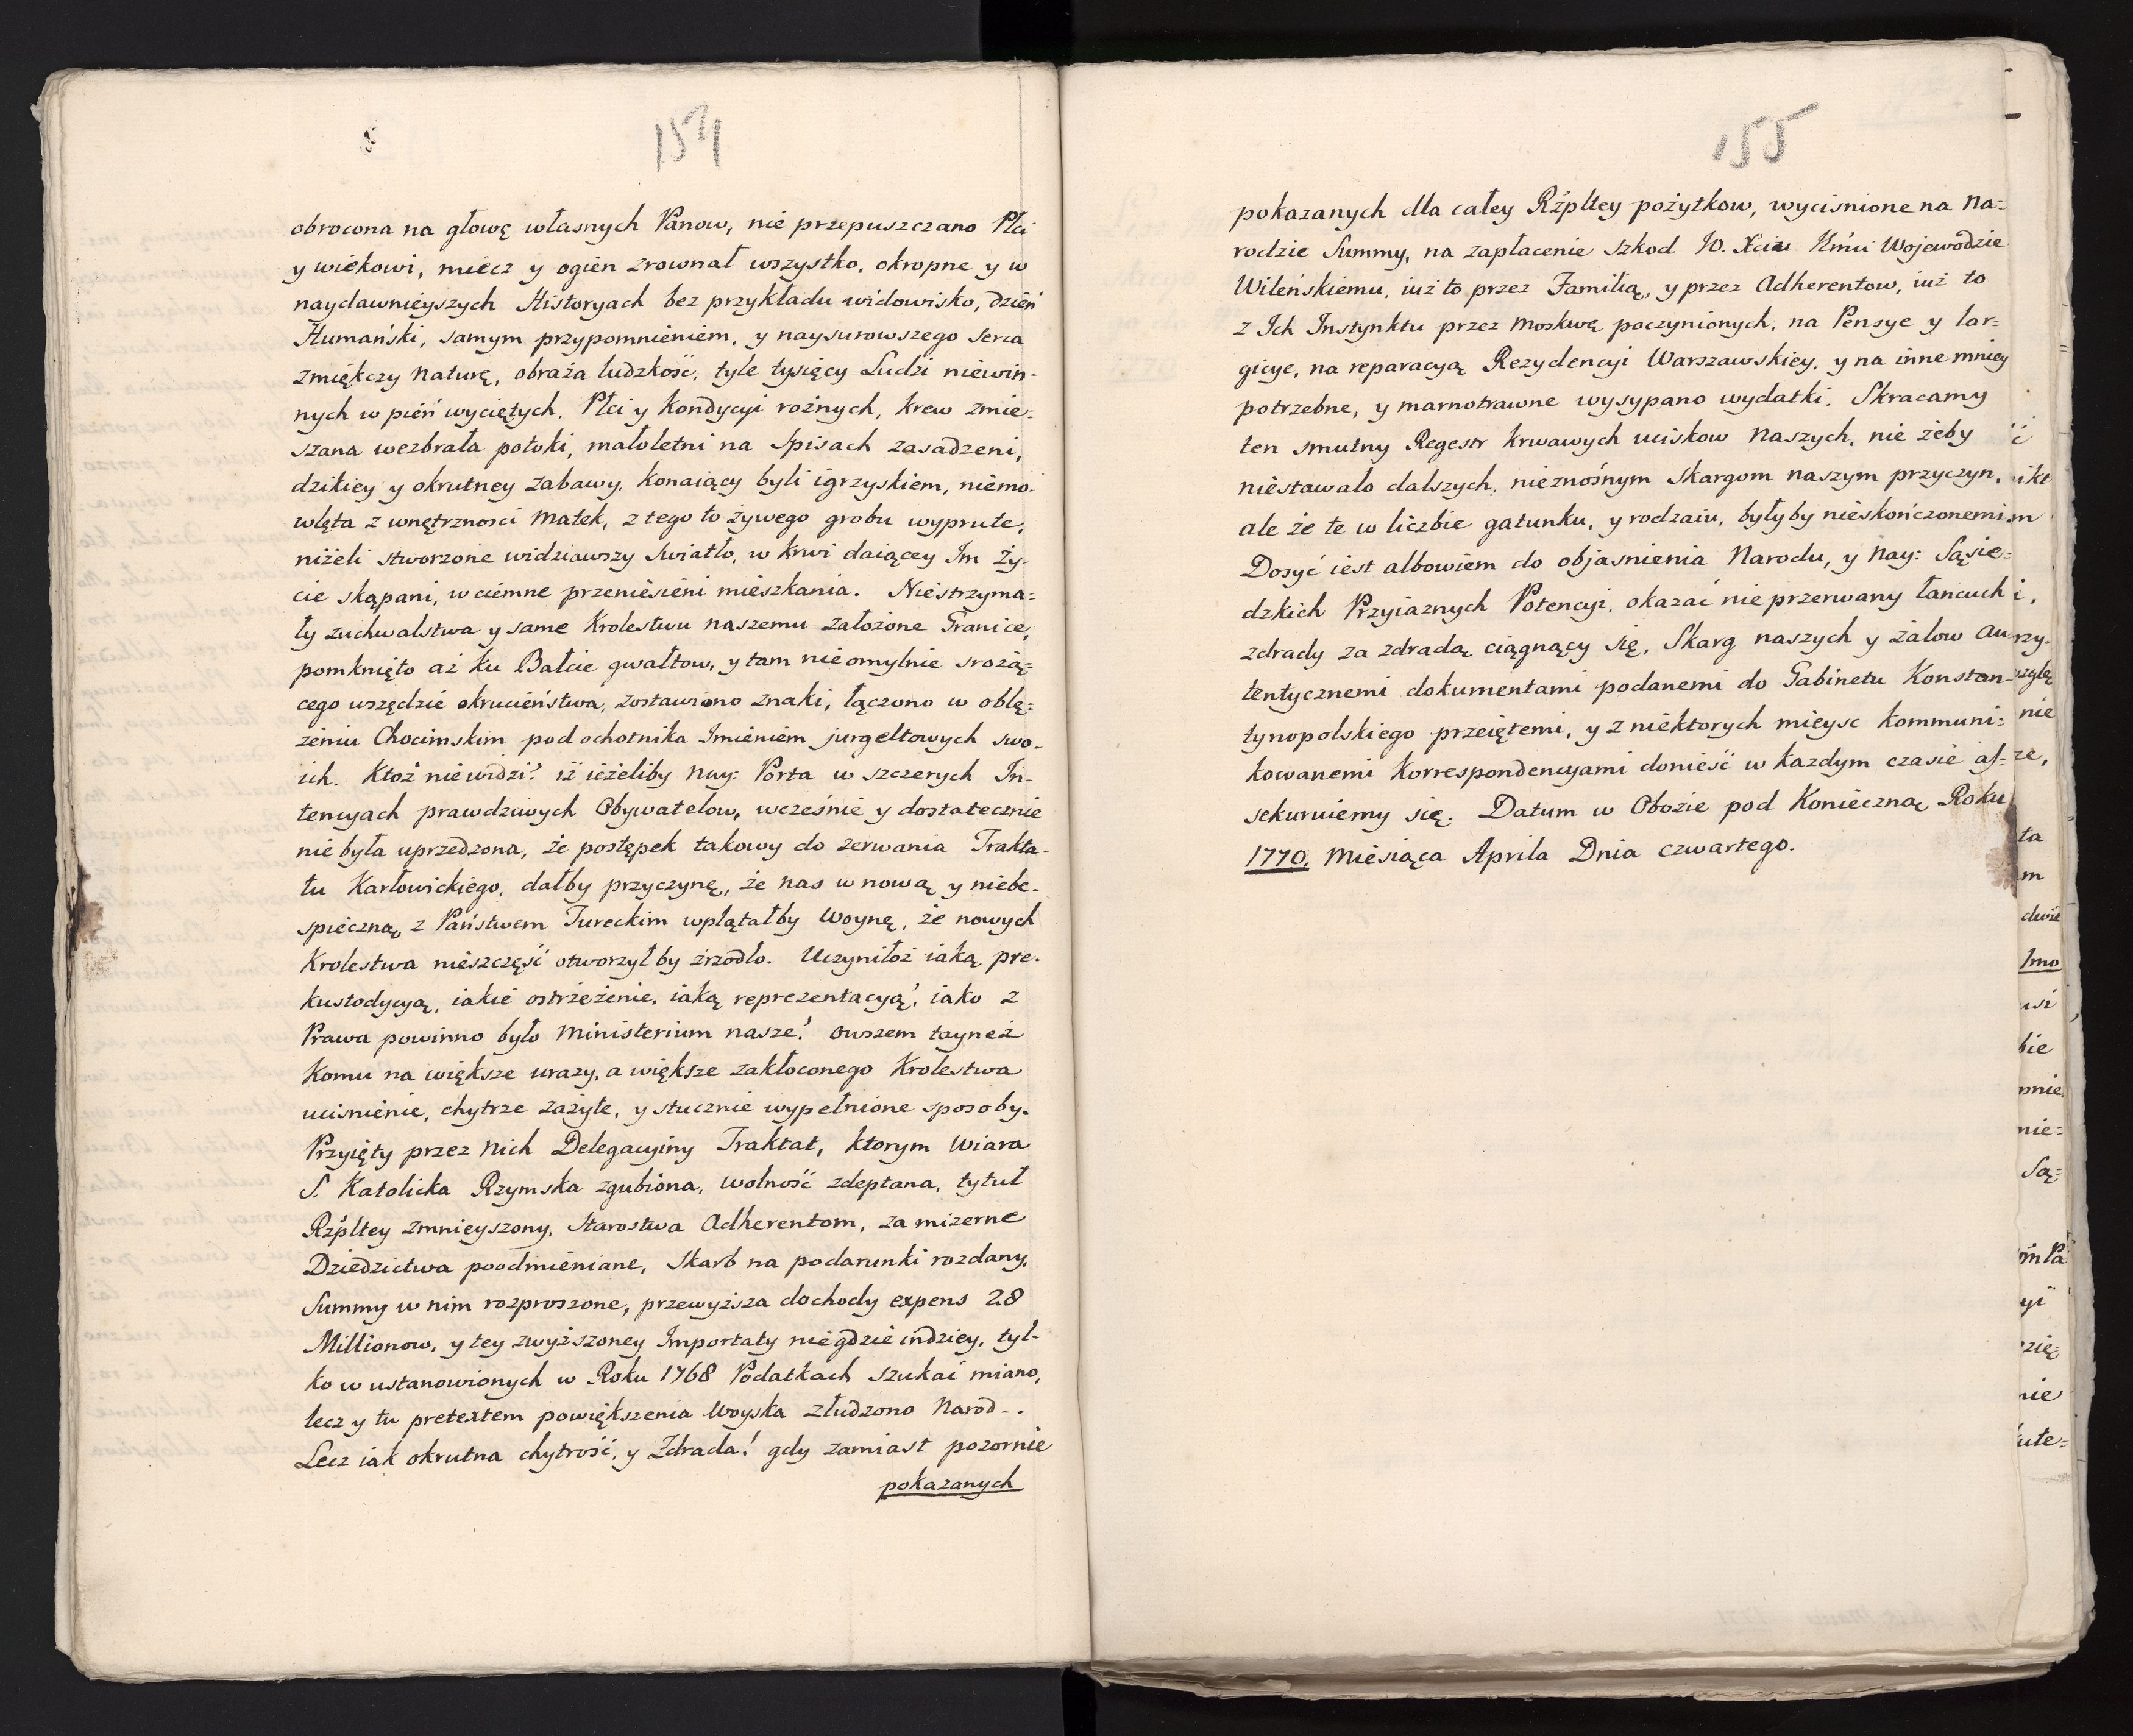 154
obrocona na głowę własnych Panow, nie przepuszczano Płci
y wiekowi, miecz y ogien zrownał wszystko, okropne y w
naydawnieyszych Historyach bez przykładu widowisko, dzień
Humański, samym przypomnieniem, y naysurowszego serca
zmiękczy naturę, obraża ludzkość, tyle tysięcy Ludzi niewin-
nych w pień wyciętych, Płci y Kondycyi rożnych, krew zmie=
szana wezbrała potoki, małoletni na Spisach zasadzeni,
dzikiey y okrutney zabawy, konaiący byli igrzyskiem, niemo-
wlęta z wnętrznosci Matek, z tego to żywego grobu wyprute,
niżeli stworzone widziawszy swiatło, w krwi daiącey Im ży-
cie skąpani, w ciemne przeniesieni mieszkania. Niestrzyma=
ły zuchwalstwa y same Krolestwu naszemu założone Granice,
pomknięto aż ku Bałcie gwałtow, y tam nieomylnie srożą=
cego wszędzie okrucieństwa, zostawiono znaki, łączono w oblę=
żeniu Chocimskim pod ochotnika Imieniem jurgeltowych swo-
ich. Ktoż niewidzi? iż ieżeliby Nay: Porta w szczerych In-
tencyach prawdziwych Obywatelow, wcześnie y dostatecznie
nie była uprzedzona, że postępek takowy do zerwania Trakta-
tu Karłowickiego, dałby przyczynę, że nas w nową y niebe-
spieczną z Państwem Tureckim wplątałby Woynę, że nowych
Krolestwa nieszczęść otworzyłby źrzodło. Uczyniłoż iaką pre-
kustodycyą, iakie ostrzeżenie, iaką reprezentacyą! iako z
Prawa powinno było Ministerium nasze! owszem tayneż
komu na większe urazy, a większe zakłoconego Krolestwa
ucisnienie, chytrze zażyte, y stucznie wypełnione sposoby.
Przyięty przez Nich Delegacyiny Traktat, ktorym Wiara
S. Katolicka Rzymska zgubiona, wolność zdeptana, tytuł
Rzpltey zmnieyszony, Starostwa Adherentom, za mizerne
Dziedzictwa poodmieniane, Skarb na podarunki rozdany,
Summy w nim rozproszone, przewyższa dochody expens 28
Millionow, y tey zwyższoney Importaty niegdzie indziey, tyl-
ko w ustanowionych w Roku 1768 Podatkach szukać miano,
lecz y tu pretextem powiększenia Woyska złudzono Narod-.
Lecz iak okrutna chytrość, y Zdrada! gdy zamiast pozornie
pokazanych
155
pokazanych dla całey Rzpltey pożytkow, wycisnione na Na=
rodzie Summy, na zapłacenie szkod W. Xciu Jmci Wojewodzie
Wileńskiemu, iuż to przez Familią, y przez Adherentow, iuż to
z Ich Instynktu przez Moskwę poczynionych, na Pensye y lar=
gicye, na reparacyą Rezydencyi Warszawskiey, y na inne mniey
potrzebne, y marnotrawne wysypano wydatki. Skracamy
ten smutny Regestr krwawych uciskow Naszych, nie żeby
niestawało dalszych, nieznośnym Skargom naszym przyczyn,
ale że te w liczbie gatunku, y rodzaiu, byłyby nieskończonemi
Dosyć iest albowiem do objasnienia Narodu, y Nay: Sąsie=
dzkich Przyiaznych Potencyi, okazać nie przerwany łancuch
zdrady za zdradą ciągnący się, Skarg naszych y żalow Au
tentycznemi dokumentami podanemi do Gabinetu Konstan-
tynopolskiego przeiętemi, y z niektorych mieysc kommuni=
kowanemi Korrespondencyami donieść w każdym czasie as=
sekuruiemy się. Datum w Obozie pod Konieczną Roku
1770. Miesiąca Aprila Dnia czwartego.
ikt
rzy.
nie
ze,
ta
m
dwie
Imo
usi
bie
mnie
nie=
Są=
yi
zię
nie
ute=